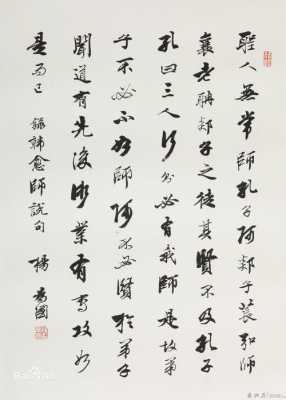 聖人無常師孔子師郯子萇弘師
襄老聃郯子之徒其賢不及孔子
孔曰三人行則必有我師是故弟
子不必不如師師不必賢於弟子
聞道有先後術業有專攻如
是而已 錄韓愈師說句 楊國
Bai百科